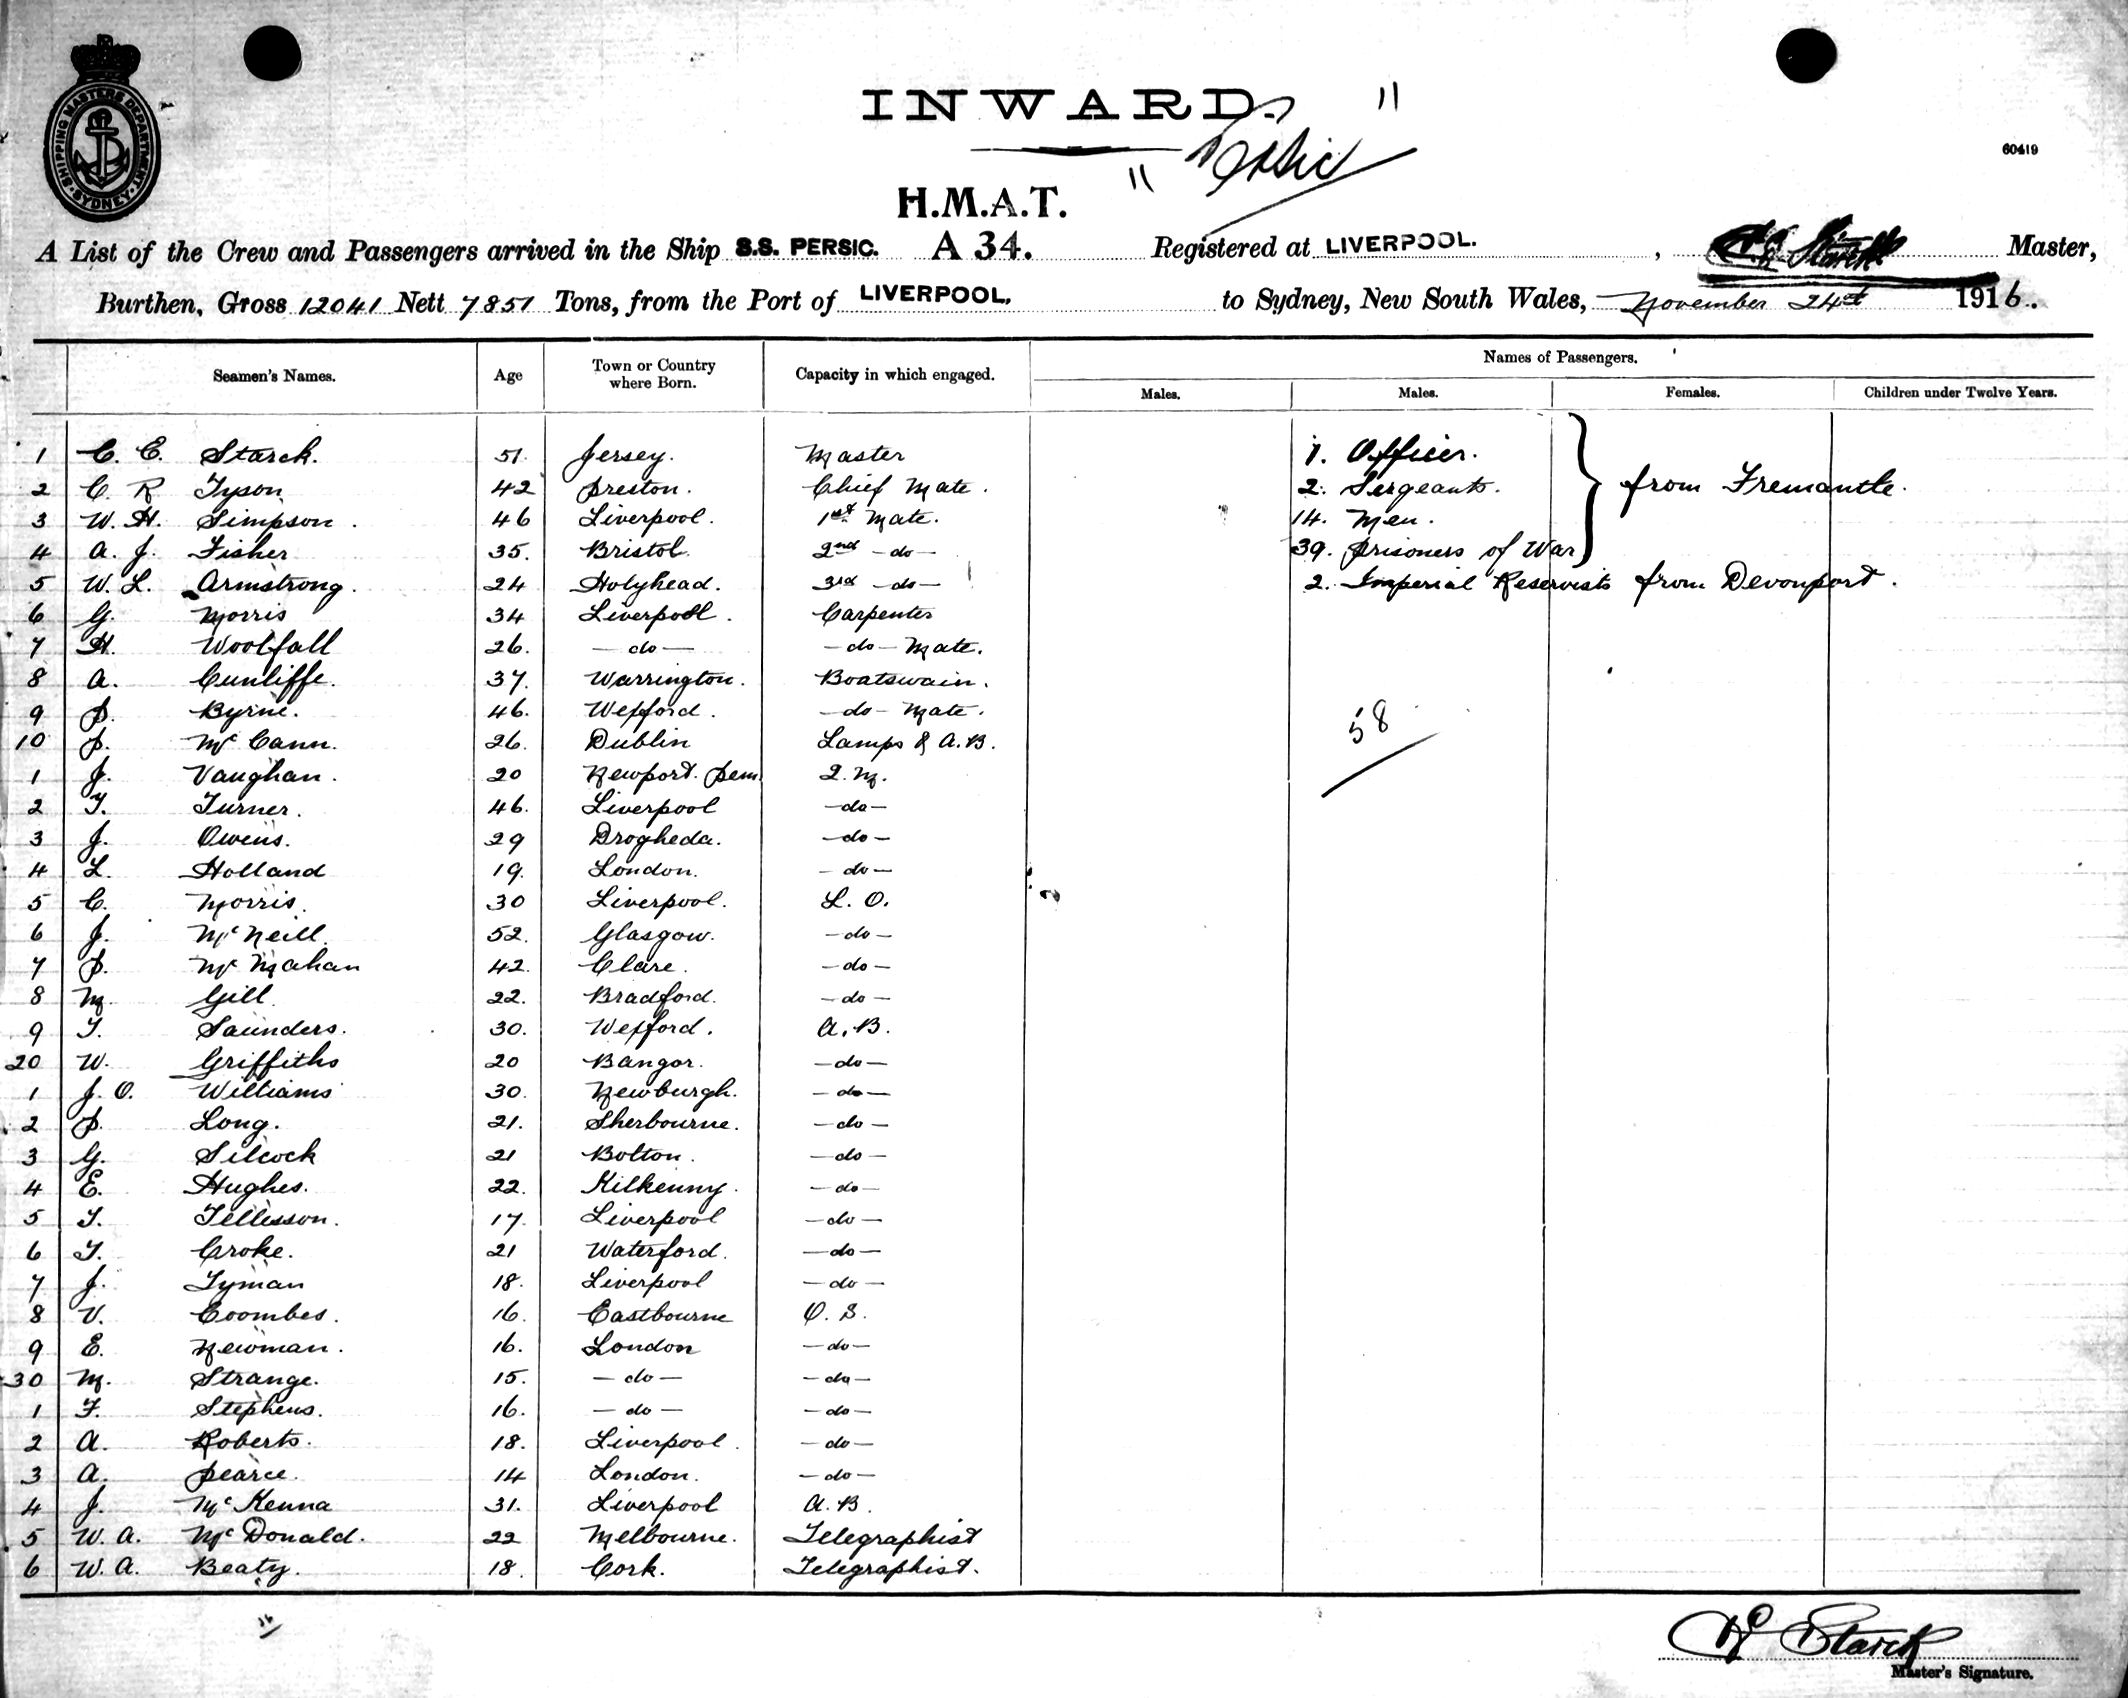 SHIPPING MASTERS DEPARTMENT SYDNEY
INWARD.
" Persic "
60419
H.M.A.T.
A List of the Crew and Passengers arrived in the Ship S.S. PERSIC. A 34. Registered at LIVERPOOL. , Starck Master,
Burthen, Gross 12041 Nett 7851 Tons, from the Port of LIVERPOOL. to Sydney, New South Wales, November 24th 1916.
Seamen's Names. Age Town or Country where Born. Capacity in which engaged. Names of Passengers.
Males. Males. Females. Children under Twelve Years.
1 C. E. Starck. 51. Jersey. Master 1. Officer.
2 C. R. Tyson 42 Preston. Chief Mate. 2. Sergeants. } from Fremantle.
3 W. H. Simpson. 46 Liverpool. 1st Mate. 14. Men.
4 A. J. Fisher 35. Bristol. 2nd -do- 39. Prisoners of War
5 W. L. Armstrong. 24 Holyhead. 3rd -do- 2. Imperial Reservists from Devonport.
6 G. Morris 34 Liverpool. Carpenter
7 H. Woolfall 26. -do- -do- Mate.
8 A. Cunliffe. 37. Warrington. Boatswain.
9 P. Byrne. 46. Wexford. -do- Mate. 58
10 P. McCann. 26. Dublin Lamps & A.B.
1 J. Vaughan. 20 Newport. Pem. Q.M.
2 T. Turner. 46. Liverpool -do-
3 J. Owens. 29 Drogheda. -do-
4 L. Holland 19. London. -do-
5 C. Morris. 30 Liverpool. L.O.
6 J. McNeill. 52. Glasgow. -do-
7 P. McMahan 42. Clare. -do-
8 M. Gill 22. Bradford. -do-
9 T. Saunders. 30. Wexford. A.B.
20 W. Griffiths 20 Bangor. -do-
1 J. O. Williams 30. Newburgh. -do-
2 P. Long. 21. Sherbourne. -do-
3 G. Silcock 21 Bolton. -do-
4 E. Hughes. 22. Kilkenny. -do-
5 T. Tellesson. 17. Liverpool -do-
6 T. Croke. 21 Waterford. -do-
7 J. Tyman 18. Liverpool -do-
8 V. Coombes. 16. Eastbourne O.S.
9 E. Newman. 16. London -do-
30 M. Strange. 15. -do- -do-
1 F. Stephens. 16. -do- -do-
2 A. Roberts. 18. Liverpool. -do-
3 A. Pearce. 14 London. -do-
4 J. McKenna 31. Liverpool A.B.
5 W. A. McDonald. 22 Melbourne. Telegraphist
6 W. A. Beaty. 18. Cork. Telegraphist.
Starck
Master's Signature.